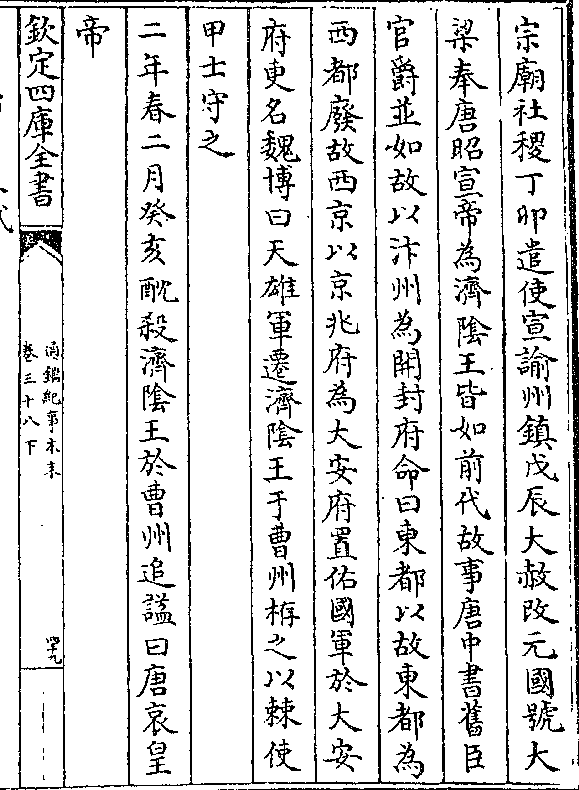 宗廟社稷丁卯遣使宣諭州鎮戊辰大赦改元國號大
梁奉唐昭宣帝為濟陰王皆如前代故事唐中書舊臣
官爵並如故以汴州為開封府命曰東都以故東都為
西都廢故西京以京兆府為大安府置佑國軍於大安
府更名魏博曰天雄軍遷濟陰王于曹州栫之以棘使
甲士守之
二年春二月癸亥酖殺濟陰王於曹州追諡曰唐哀皇
帝
欽定四庫全書
通鑑紀事本末
卷三十八下
四十九